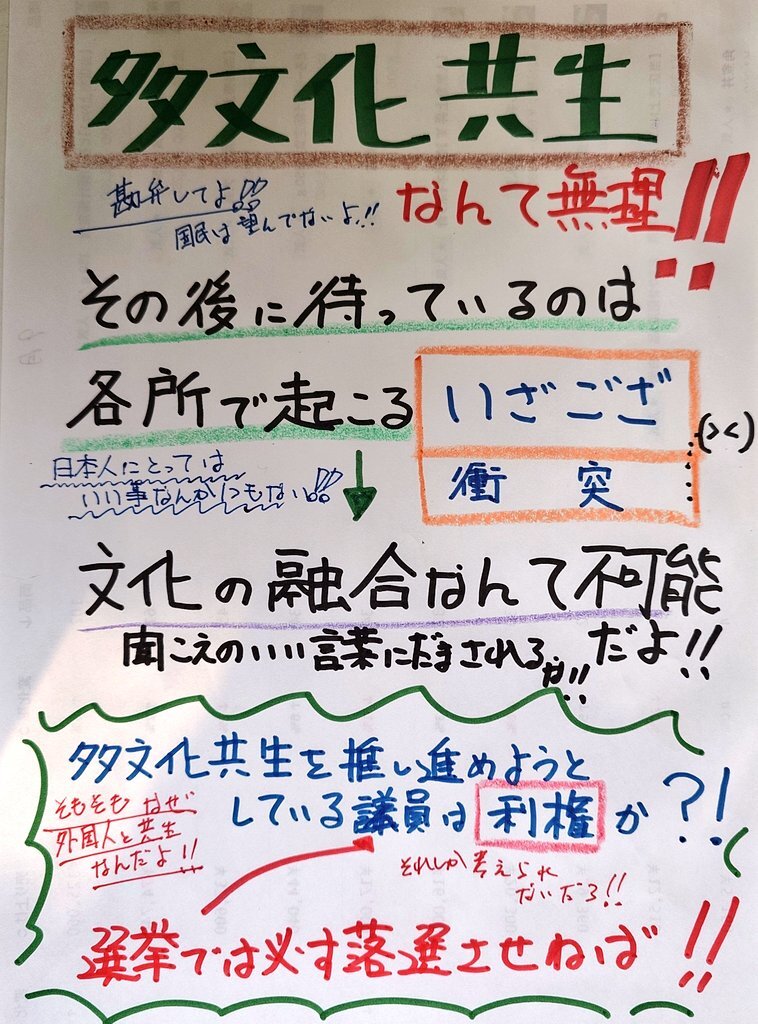 多文化共生
なんて無理!!
勘弁してよ!!
国民は望んでないよ!!
その後に待っているのは
各所で起こる
いざこざ
衝突
(><)
日本人にとっては
いい事なんか1つもない!!
文化の融合なんて不可能
だよ!!
聞こえのいい言葉にだまされるな!!
多文化共生を推し進めようと
している議員は利権か?!
そもそもなぜ
外国人と共生
なんだよ!!
それしか考えられ
ないだろ!!
選挙では必ず落選させねば!!